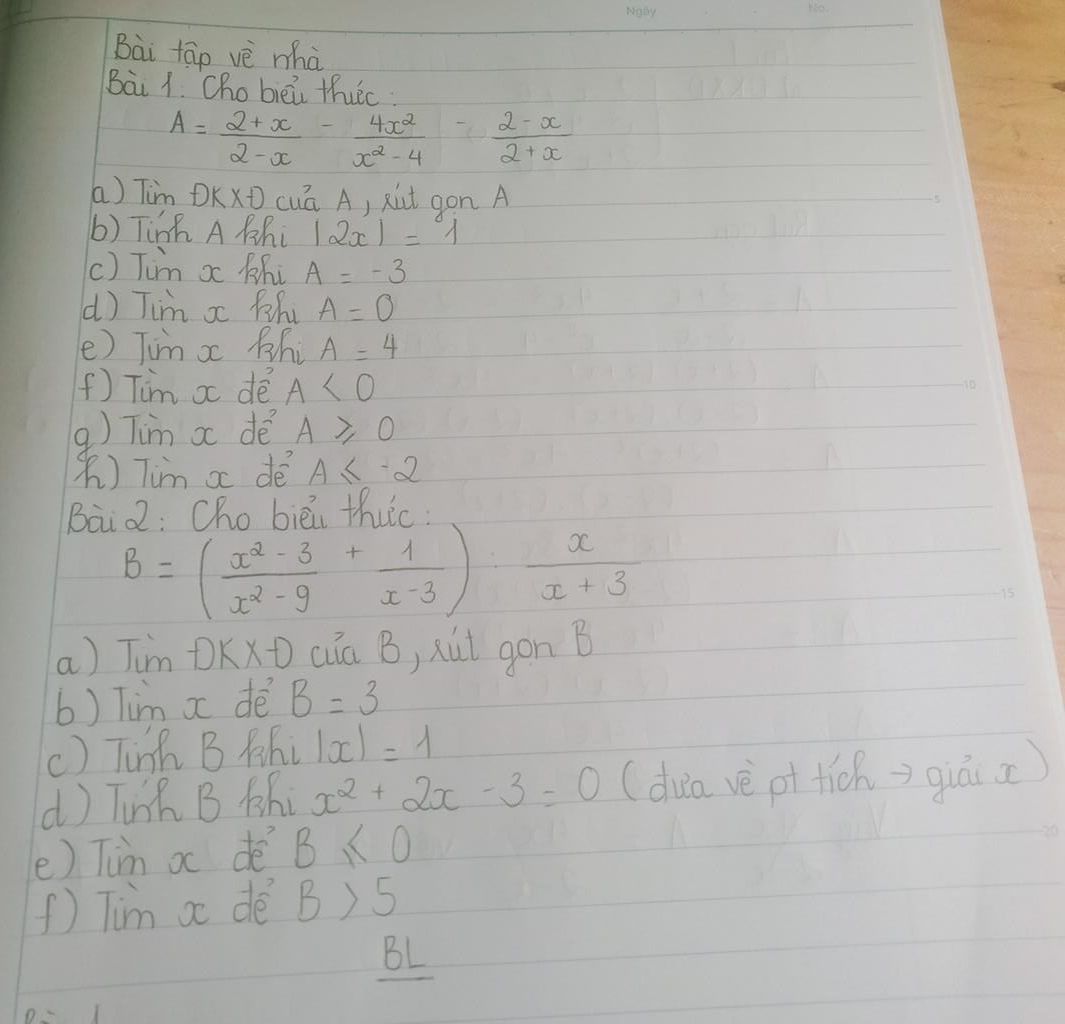 Ngày No.
Bài tập về nhà
Bài 1: Cho biểu thức:
A = \frac{2+x}{2-x} - \frac{4x²}{x²-4} - \frac{2-x}{2+x}
a) Tìm ĐKXĐ của A, rút gọn A
5
b) Tính A khi |2x| = 1
c) Tìm x khi A = -3
d) Tìm x khi A = 0
e) Tìm x khi A = 4
f) Tìm x để A < 0
10
g) Tìm x để A ⩾ 0
h) Tìm x để A ⩽ -2
Bài 2: Cho biểu thức:
B = (\frac{x²-3}{x²-9} + \frac{1}{x-3}) : \frac{x}{x+3}
15
a) Tìm ĐKXĐ của B, rút gọn B
b) Tìm x để B = 3
c) Tính B khi |x| = 1
d) Tính B khi x² + 2x - 3 = 0 (đưa về pt tích → giải x)
20
e) Tìm x để B ⩽ 0
f) Tìm x để B > 5
BL